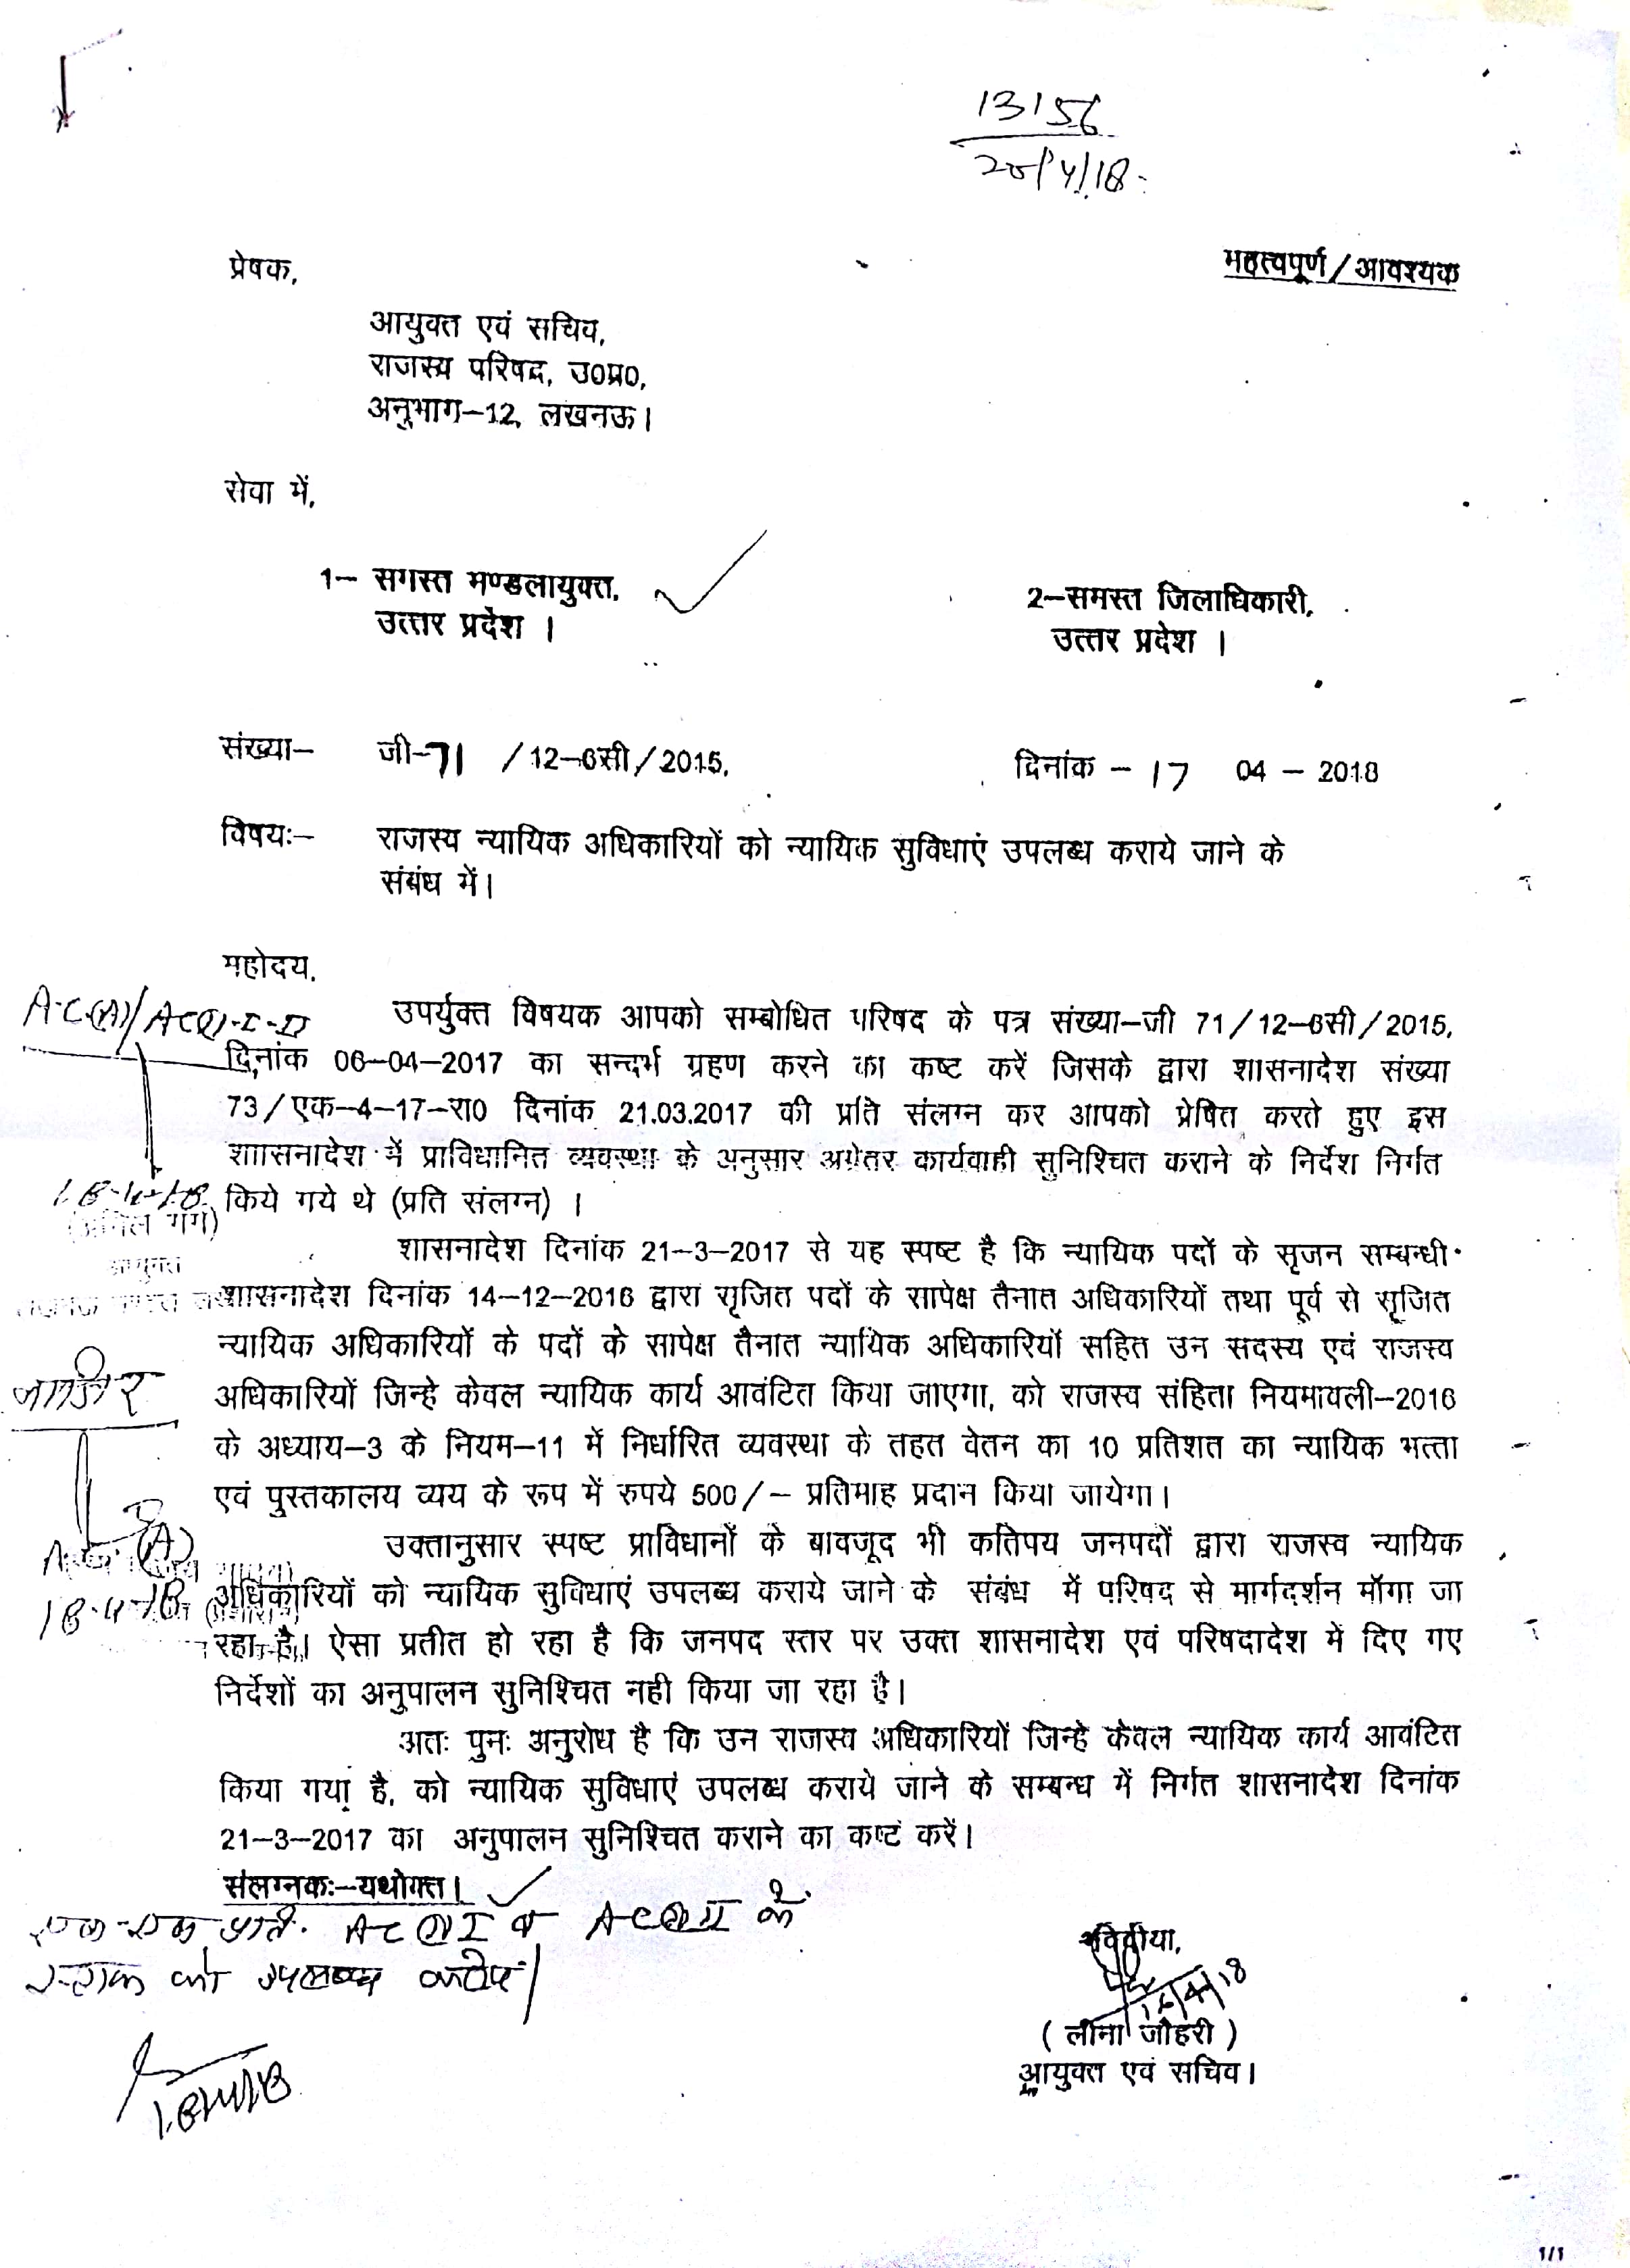 13156
20/4/18
महत्वपूर्ण/आवश्यक
प्रेषक,
आयुक्त एवं सचिव,
राजस्व परिषद, उ0प्र0,
अनुभाग-12, लखनऊ।
सेवा में,
1- समस्त मण्डलायुक्त,
उत्तर प्रदेश ।
2-समस्त जिलाधिकारी,
उत्तर प्रदेश ।
संख्या- जी-71 /12-6सी/2015, दिनांक - 17 04 - 2018
विषयः- राजस्व न्यायिक अधिकारियों को न्यायिक सुविधाएं उपलब्ध कराये जाने के
संबंध में।
महोदय,
उपर्युक्त विषयक आपको सम्बोधित परिषद के पत्र संख्या-जी 71/12-6सी/2015,
दिनांक 06-04-2017 का सन्दर्भ ग्रहण करने का कष्ट करें जिसके द्वारा शासनादेश संख्या
73/एक-4-17-रा0 दिनांक 21.03.2017 की प्रति संलग्न कर आपको प्रेषित करते हुए इस
शासनादेश में प्राविधानित व्यवस्था के अनुसार अग्रेतर कार्यवाही सुनिश्चित कराने के निर्देश निर्गत
किये गये थे (प्रति संलग्न) ।
शासनादेश दिनांक 21-3-2017 से यह स्पष्ट है कि न्यायिक पदों के सृजन सम्बन्धी
शासनादेश दिनांक 14-12-2016 द्वारा सृजित पदों के सापेक्ष तैनात अधिकारियों तथा पूर्व से सृजित
न्यायिक अधिकारियों के पदों के सापेक्ष तैनात न्यायिक अधिकारियों सहित उन सदस्य एवं राजस्व
अधिकारियों जिन्हे केवल न्यायिक कार्य आवंटित किया जाएगा, को राजस्व संहिता नियमावली-2016
के अध्याय-3 के नियम-11 में निर्धारित व्यवस्था के तहत वेतन का 10 प्रतिशत का न्यायिक भत्ता
एवं पुस्तकालय व्यय के रूप में रुपये 500/- प्रतिमाह प्रदान किया जायेगा।
उक्तानुसार स्पष्ट प्राविधानों के बावजूद भी कतिपय जनपदों द्वारा राजस्व न्यायिक
अधिकारियों को न्यायिक सुविधाएं उपलब्ध कराये जाने के संबंध में परिषद से मार्गदर्शन मॉगा जा
रहा है। ऐसा प्रतीत हो रहा है कि जनपद स्तर पर उक्त शासनादेश एवं परिषदादेश में दिए गए
निर्देशों का अनुपालन सुनिश्चित नही किया जा रहा है।
अतः पुनः अनुरोध है कि उन राजस्व अधिकारियों जिन्हे केवल न्यायिक कार्य आवंटित
किया गया है, को न्यायिक सुविधाएं उपलब्ध कराये जाने के सम्बन्ध में निर्गत शासनादेश दिनांक
21-3-2017 का अनुपालन सुनिश्चित कराने का कष्ट करें।
संलग्नकः-यथोक्त।
A-C(A)/
18-4-18
(अनिल गर्ग)
आयुक्त
18-4-18
एक-एक प्रति
को उपलब्ध
भवदीया,
(लीना जौहरी)
आयुक्त एवं सचिव।
1/1